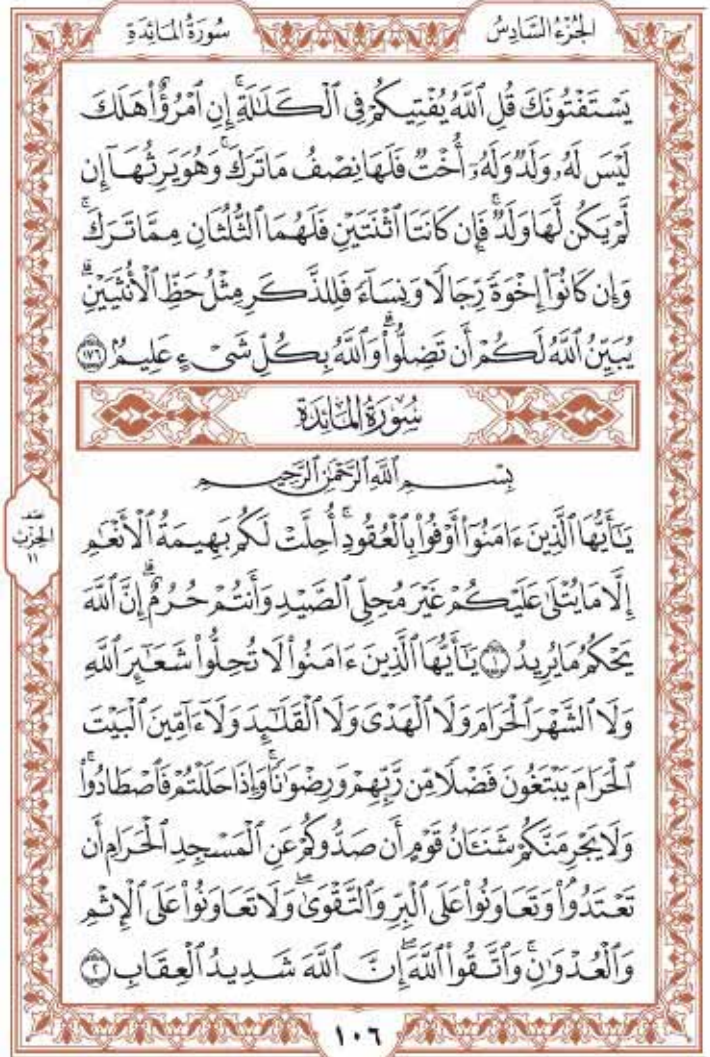 سُورَةُ المَائِدَةِ
الجُزْءُ السَّادِسُ
يَسْتَفْتُونَكَ قُلِ ٱللَّهُ يُفْتِيكُمْ فِي ٱلْكَلَٰلَةِۚ إِنِ ٱمْرُؤٌاْ هَلَكَ
لَيْسَ لَهُۥ وَلَدٌ وَلَهُۥٓ أُخْتٌ فَلَهَا نِصْفُ مَا تَرَكَۚ وَهُوَ يَرِثُهَآ إِن
لَّمْ يَكُن لَّهَا وَلَدٌۚ فَإِن كَانَتَا ٱثْنَتَيْنِ فَلَهُمَا ٱلثُّلُثَانِ مِمَّا تَرَكَۚ
وَإِن كَانُوٓاْ إِخْوَةً رِّجَالًا وَنِسَآءً فَلِلذَّكَرِ مِثْلُ حَظِّ ٱلْأُنثَيَيْنِۗ
يُبَيِّنُ ٱللَّهُ لَكُمْ أَن تَضِلُّواْۗ وَٱللَّهُ بِكُلِّ شَيْءٍ عَلِيمٌۢ ١٧٦
سُورَةُ المَائِدَةِ
بِسْمِ ٱللَّهِ ٱلرَّحْمَٰنِ ٱلرَّحِيمِ
يَٰٓأَيُّهَا ٱلَّذِينَ ءَامَنُوٓاْ أَوْفُواْ بِٱلْعُقُودِۚ أُحِلَّتْ لَكُم بَهِيمَةُ ٱلْأَنْعَٰمِ
إِلَّا مَا يُتْلَىٰ عَلَيْكُمْ غَيْرَ مُحِلِّي ٱلصَّيْدِ وَأَنتُمْ حُرُمٌۗ إِنَّ ٱللَّهَ
يَحْكُمُ مَا يُرِيدُ ١ يَٰٓأَيُّهَا ٱلَّذِينَ ءَامَنُواْ لَا تُحِلُّواْ شَعَٰٓئِرَ ٱللَّهِ
وَلَا ٱلشَّهْرَ ٱلْحَرَامَ وَلَا ٱلْهَدْيَ وَلَا ٱلْقَلَٰٓئِدَ وَلَآ ءَآمِّينَ ٱلْبَيْتَ
ٱلْحَرَامَ يَبْتَغُونَ فَضْلًا مِّن رَّبِّهِمْ وَرِضْوَٰنًاۚ وَإِذَا حَلَلْتُمْ فَٱصْطَادُواْۚ
وَلَا يَجْرِمَنَّكُمْ شَنَـَٔانُ قَوْمٍ أَن صَدُّوكُمْ عَنِ ٱلْمَسْجِدِ ٱلْحَرَامِ أَن
تَعْتَدُواْۘ وَتَعَاوَنُواْ عَلَى ٱلْبِرِّ وَٱلتَّقْوَىٰۖ وَلَا تَعَاوَنُواْ عَلَى ٱلْإِثْمِ
وَٱلْعُدْوَٰنِۚ وَٱتَّقُواْ ٱللَّهَۖ إِنَّ ٱللَّهَ شَدِيدُ ٱلْعِقَابِ ٢
نصف
الحزب
١١
١٠٦